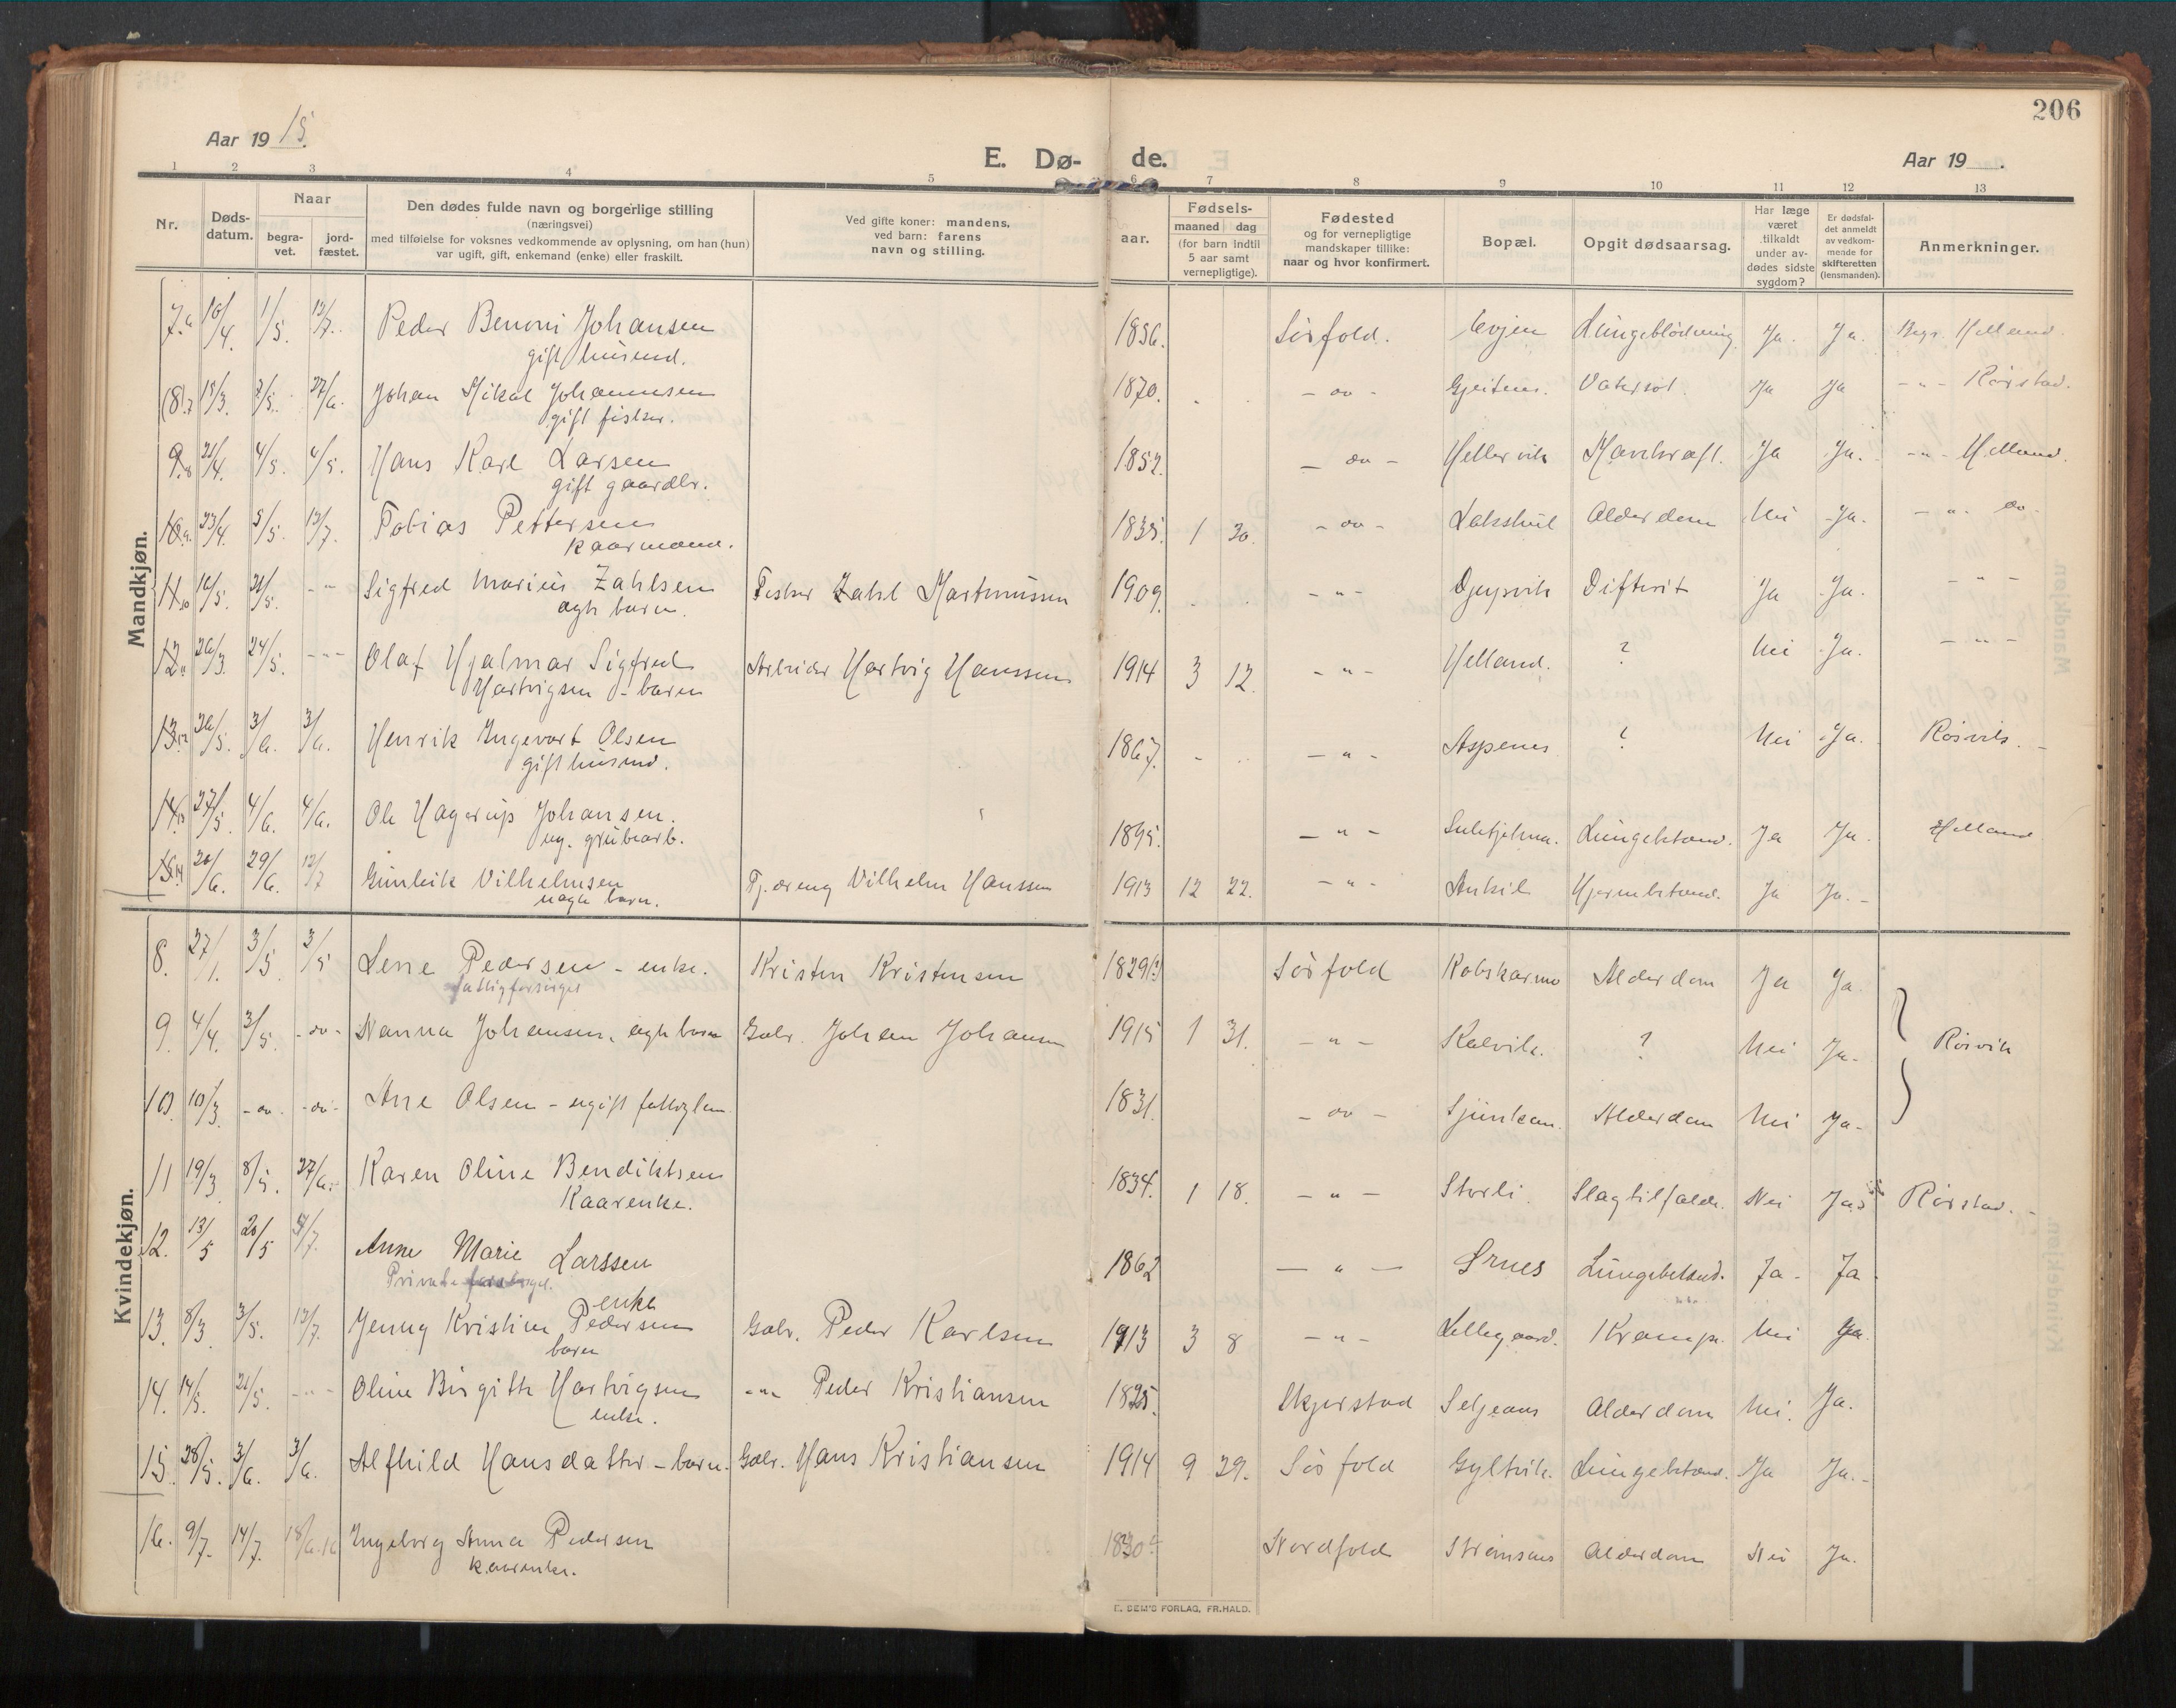 206
Aar 19 15.
E. Dø- de.
Aar 19 .
1 2 3 4 5 6 7 8 9 10 11 12 13
Nr.
Døds-
datum.
Naar
begra-
vet.
jord-
fæstet.
Den dødes fulde navn og borgerlige stilling
(næringsvei)
med tilføielse for voksnes vedkommende av oplysning, om han (hun)
var ugift, gift, enkemand (enke) eller fraskilt.
Ved gifte koner: mandens,
ved barn: farens
navn og stilling.
aar.
Fødsels-
maaned dag
(for barn indtil
5 aar samt
vernepligtige).
Fødested
og for vernepligtige
mandskaper tillike:
naar og hvor konfirmert.
Bopæl.
Opgit dødsaarsag.
Har læge
været
tilkaldt
under av-
dødes sidste
sygdom?
Er dødsfal-
det anmeldt
av vedkom-
mende for
skifteretten
(lensmanden).
Anmerkninger.
Mandkjøn.
7. 16/4. 1/5. 13/7. Peder Benoni Johansen 1856. Sörfold. Evjen Lungeblödning Ja. Ja. Begr. Helland
gift husmd.
(8). 15/3. 2/5. 27/6. Johan Mikal Johannesen 1870. - do - Vatersot. Ja Ja - " - Rörstad.
gift fisker.
9. 21/4. 4/5. 4/5. Hans Karl Larsen 1852. - do - Hellarvik Ja Ja. - " - Helland.
gift gaardbr.
10. 23/4. 5/5. 13/7. Tobias Pettersen 1835. 1 30. - do - Alderdom Nei Ja. - " - do.
kaarmand.
11. 16/5. 21/5. - " - Sigfred Marius Zahlsen Fisker Zahl Martinussen 1909. - " - Djupvik Difterit Ja Ja. - " -
ægte barn.
12. 26/3. 24/5. - " - Olaf Hjalmar Sigfred Arbeider Hartvig Hanssen 1914 3 12. - " - Helland. ? Nei Ja. - " -
Hartvigsen - barn
13. 26/5. 3/6. 3/6. Henrik Ingevart Olsen 1867. - " - Aspenes ? Nei Ja. Rösvik.
gift husmd.
14. 27/5. 4/6. 4/6. Ole Hagerup Johansen. 1895. - " - Sulitjelma. Lungebetænd. Ja Ja. Helland
ug. grubearb.
15. 20/6. 29/6. 13/7 Gunleik Vilhelmsen Vilhelm Hanssen 1913 12 22. - " - Ja Ja. -
uægte barn.
Kvindekjøn.
8. 27/1. 3/5. 3/5 Lene Pedersen - enke. Kristen Kristensen 1829(?) Sörfold Kobskarmo Alderdom Ja Ja
fattigforsörget
9. 4/4. 3/5. - do - Nanna Johansen, ægte barn Gbr. Johan Johansen 1915 1 31. - " - Kalvik. ? Nei Ja. Rösvik
10. 10/3. - do - - do - Ane Olsen - ugift fattiglem 1831. - do - Sjunkan. Alderdom Nei Ja.
11 19/3. 8/5. 27/6. Karen Oline Bendiktsen 1834. 1 18. - " - Storli. Slagtilfælde. Nei Ja Rörstad.
Kaarenke.
12. 13/5 20/5 /7. Anne Marie Larssen 1862 - " - Lungebetænd. Ja. Ja
Privat forsörget.
enke
13. 8/3 3/5. 13/7. Jenny Kristine Pedersen Gbr. Peder Karlsen 1913 3 8 - " - Lillegaard. Krampe. Nei Ja.
barn
14. 14/5. 21/5. - " - Oline Birgitte Hartvigsen - " - Peder Kristiansen 1825. Skjerstad Alderdom Nei. Ja.
enke.
15. 28/5. 3/6. 3/6. Alfhild Hansdatter - barn. Gbr. Hans Kristiansen 1914 9 29. Sörfold Gyltvik. Lungebetænd. Ja Ja. -
16. 9/7. 14/7. 18/6.16 Ingeborg Anna Pedersen 1830 Nordfold Strömsnes Alderdom Nei Ja.
kaarenke.
E. SEM'S FORLAG, FR.HALD.